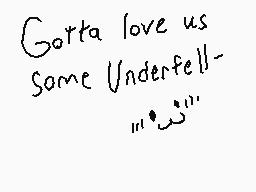 Gotta love us
some Underfell~